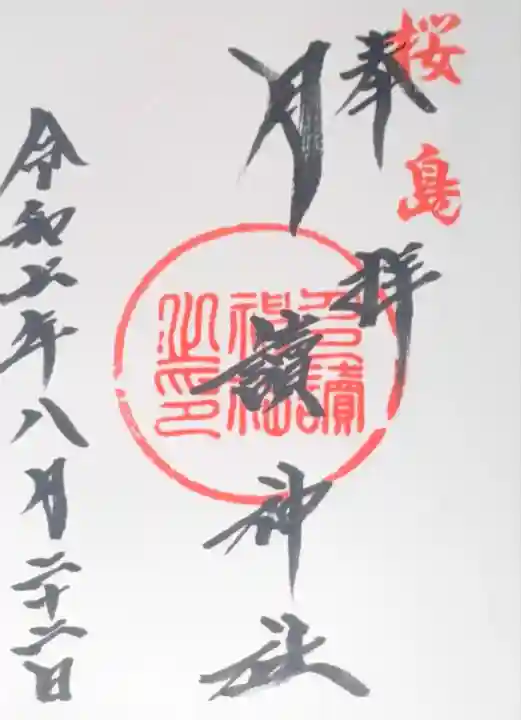 桜島
奉拝
月讀神社
月讀神社之印
令和六年八月二十二日